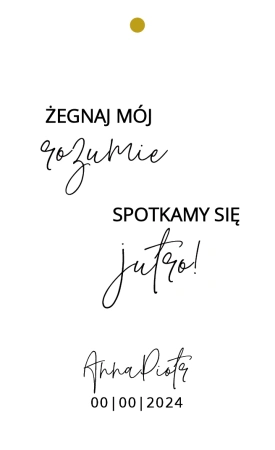 ŻEGNAJ MÓJ
rozumie
SPOTKAMY SIĘ
jutro!
Anna Piotr
00|00|2024